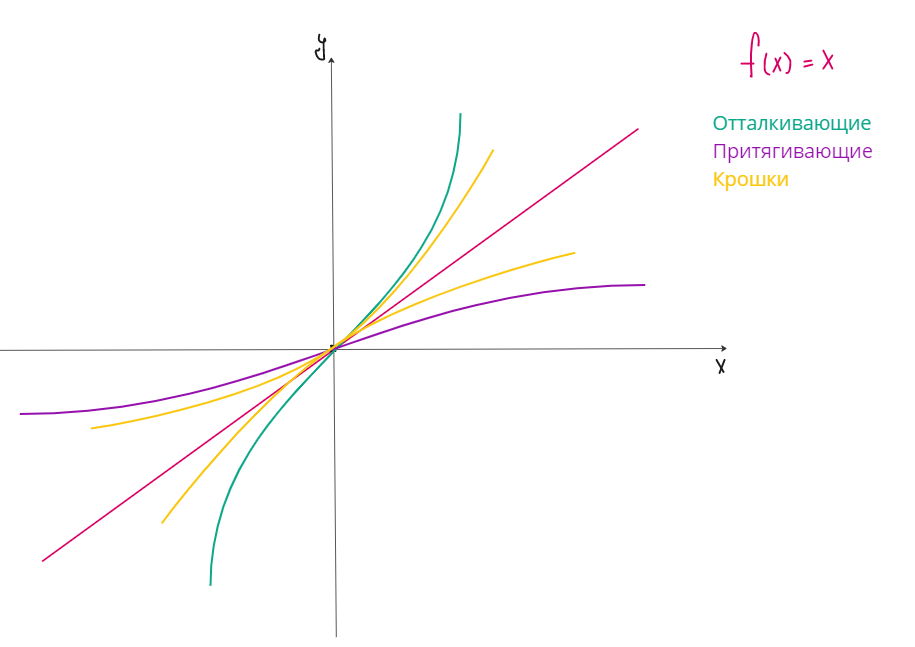 y
f(x) = x
Отталкивающие
Притягивающие
Крошки
x